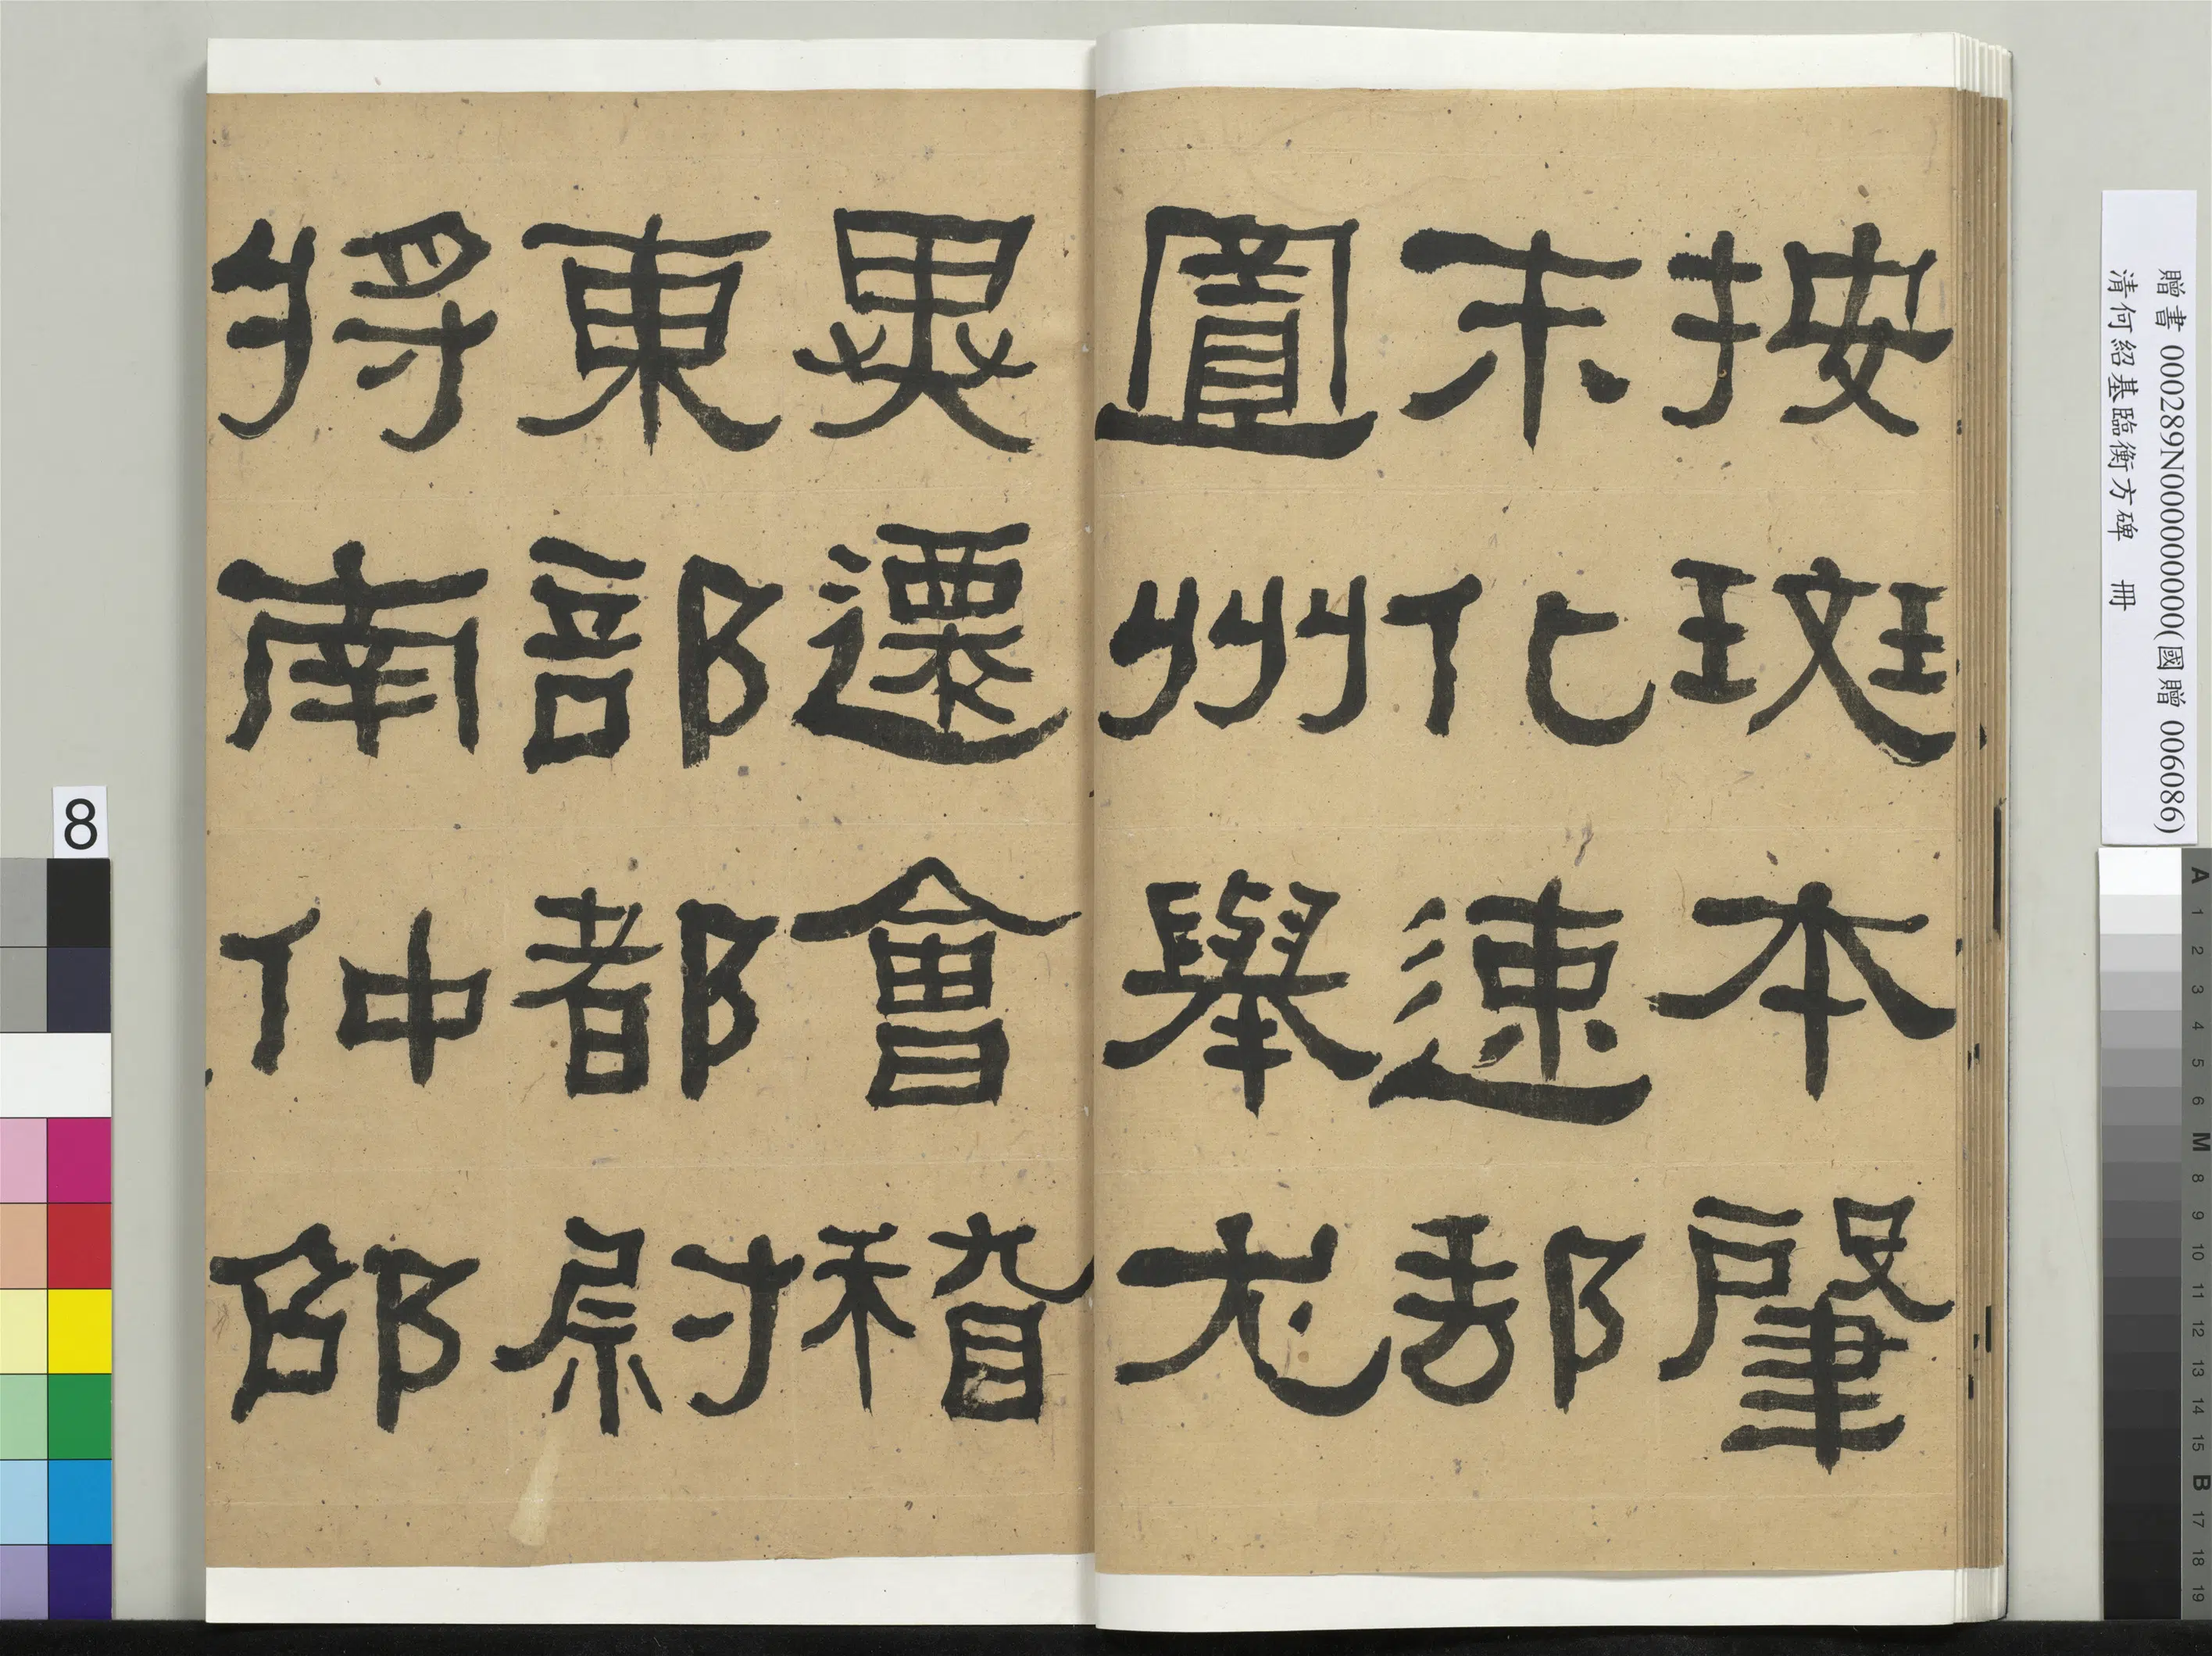 按斑本肇
末化速郵
圖州舉尤
異遷會稽
東部都尉
將南仲邵
贈書 000289N000000000(國贈 006086)
清何紹基臨衡方碑 冊
8
A 1 2 3 4 5 6 M 8 9 10 11 12 13 14 15 B 17 18 19